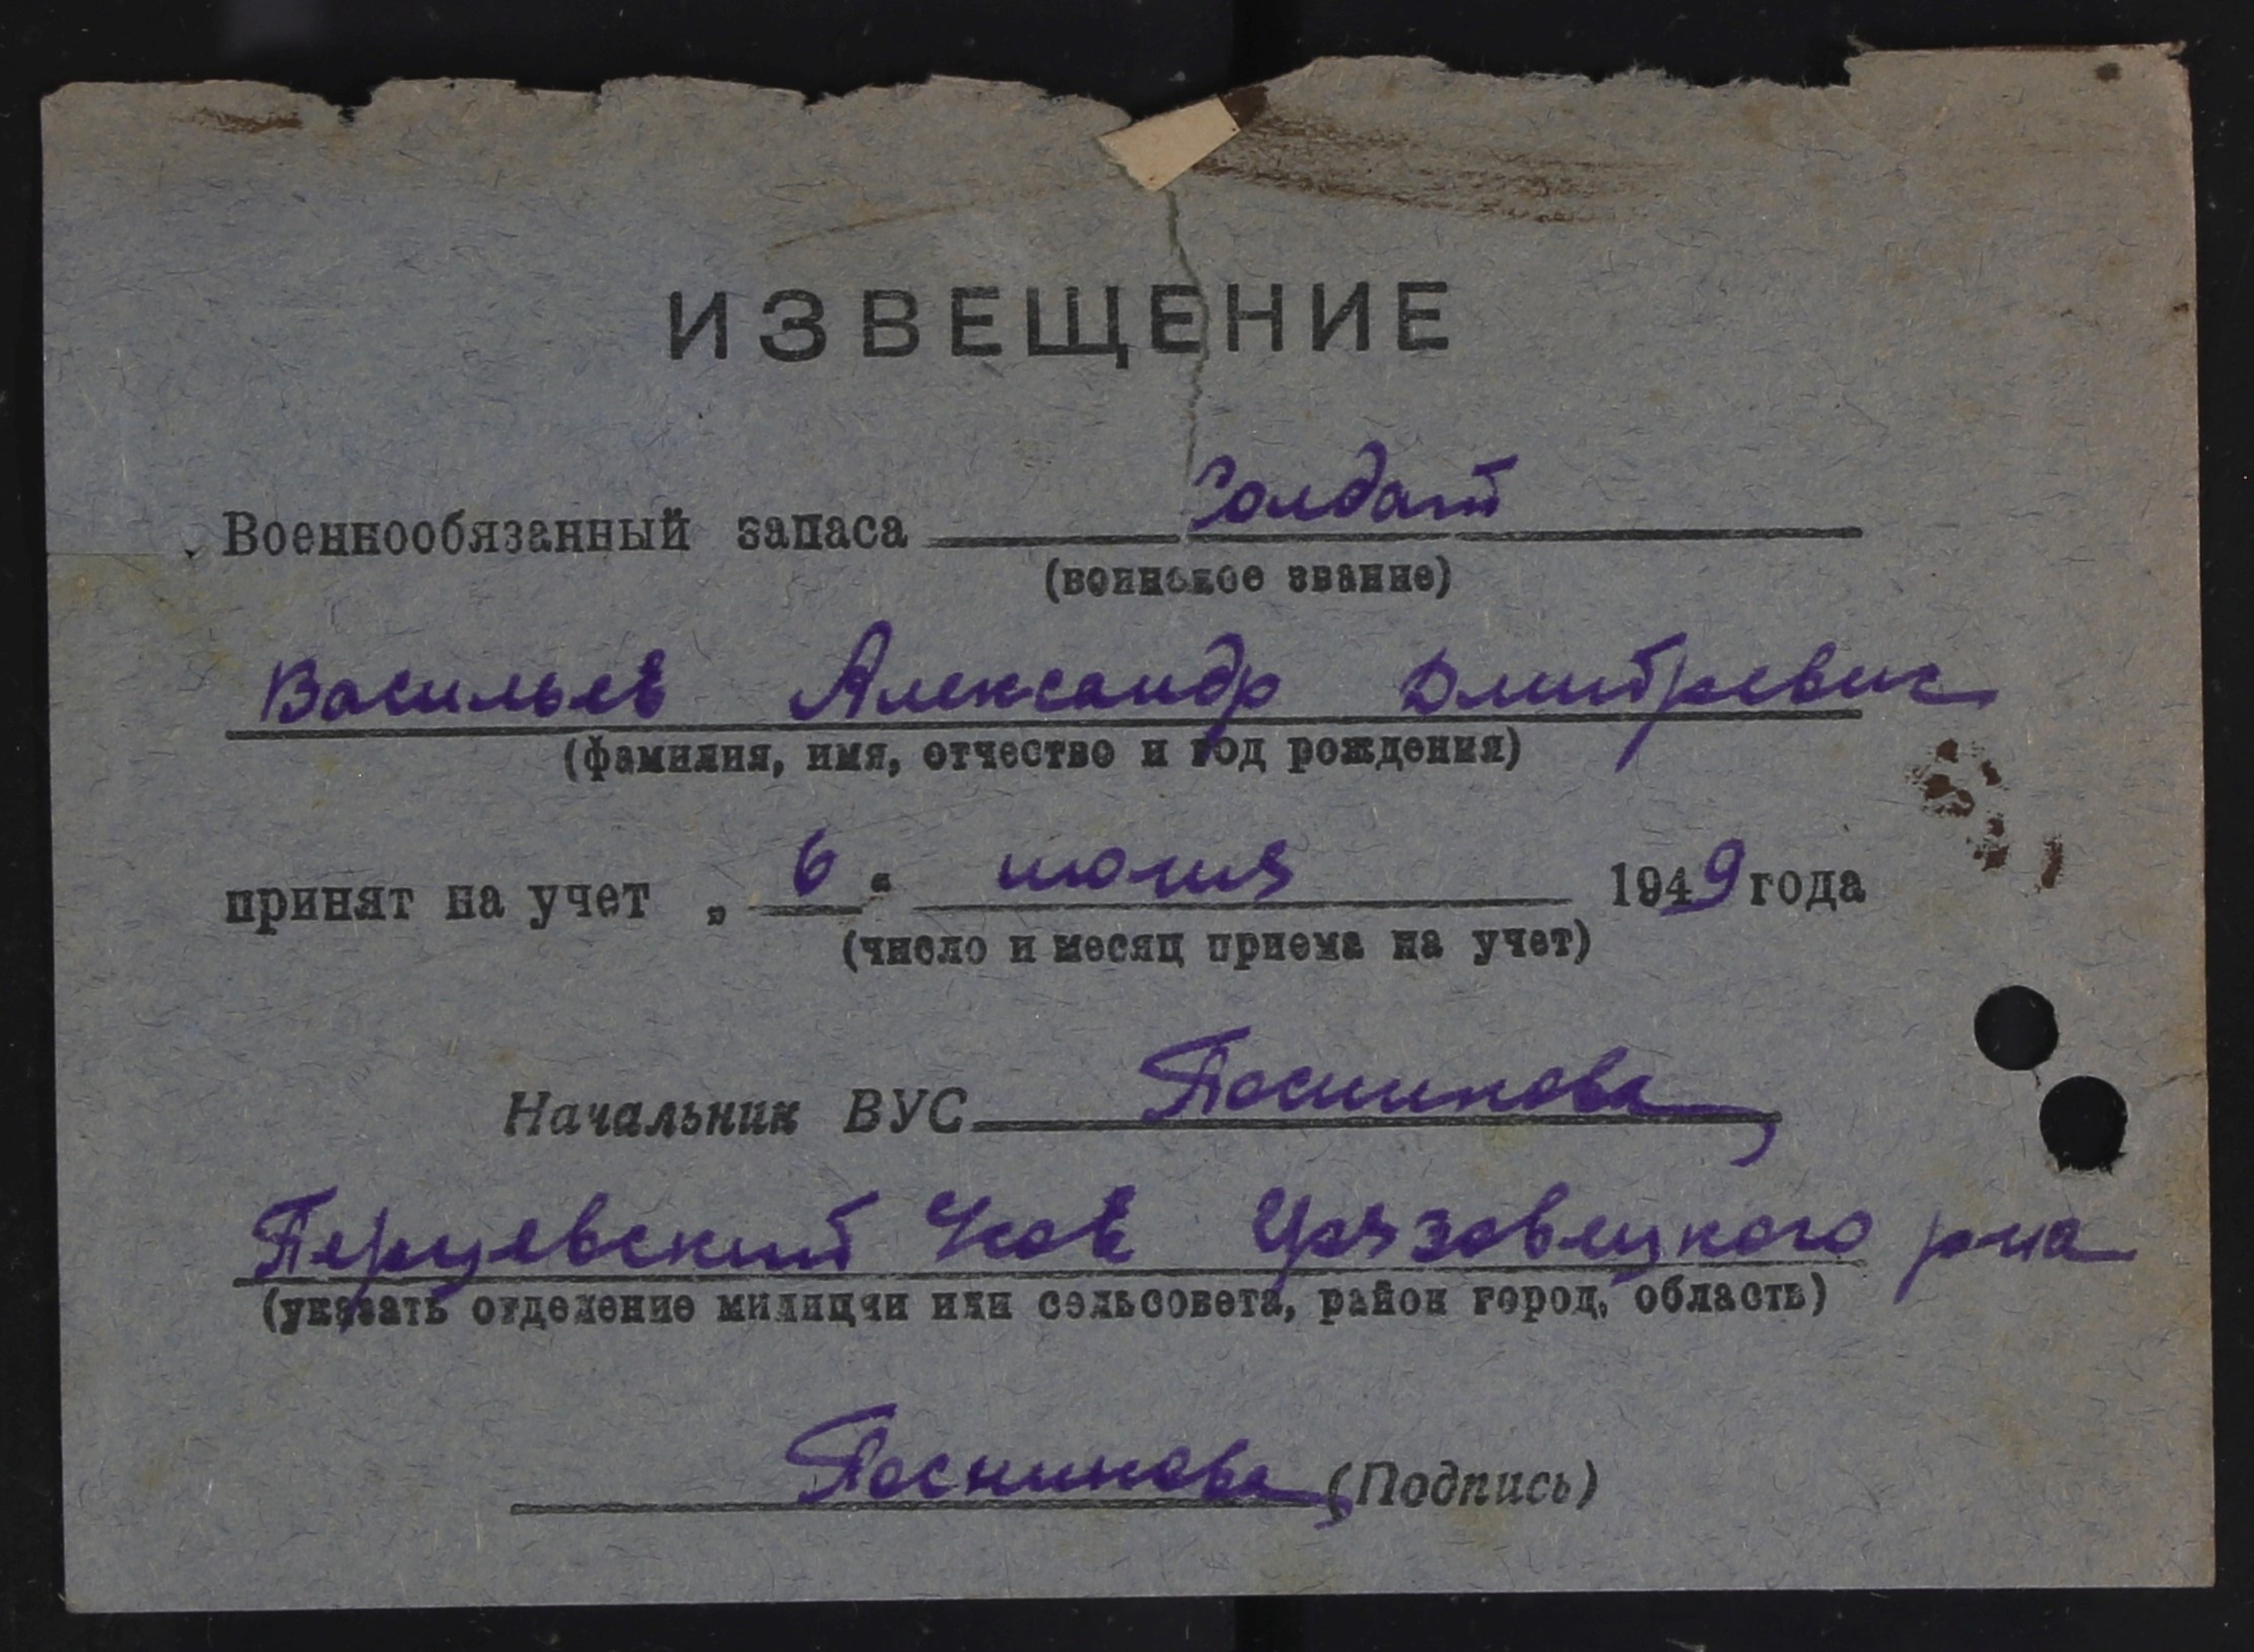 ИЗВЕЩЕНИЕ
Военнообязанный запаса Солдат
(воинское звание)
Васильев Александр Дмитревич
(фамилия, имя, отчество и год рождения)
принят на учет „ 6 “ июля 1949 года
(число и месяц приема на учет)
Начальник ВУС Посникова
Перцевский Грязовецкого рна
(указать отделение милиции или сельсовета, район город, область)
Посникова (Подпись)